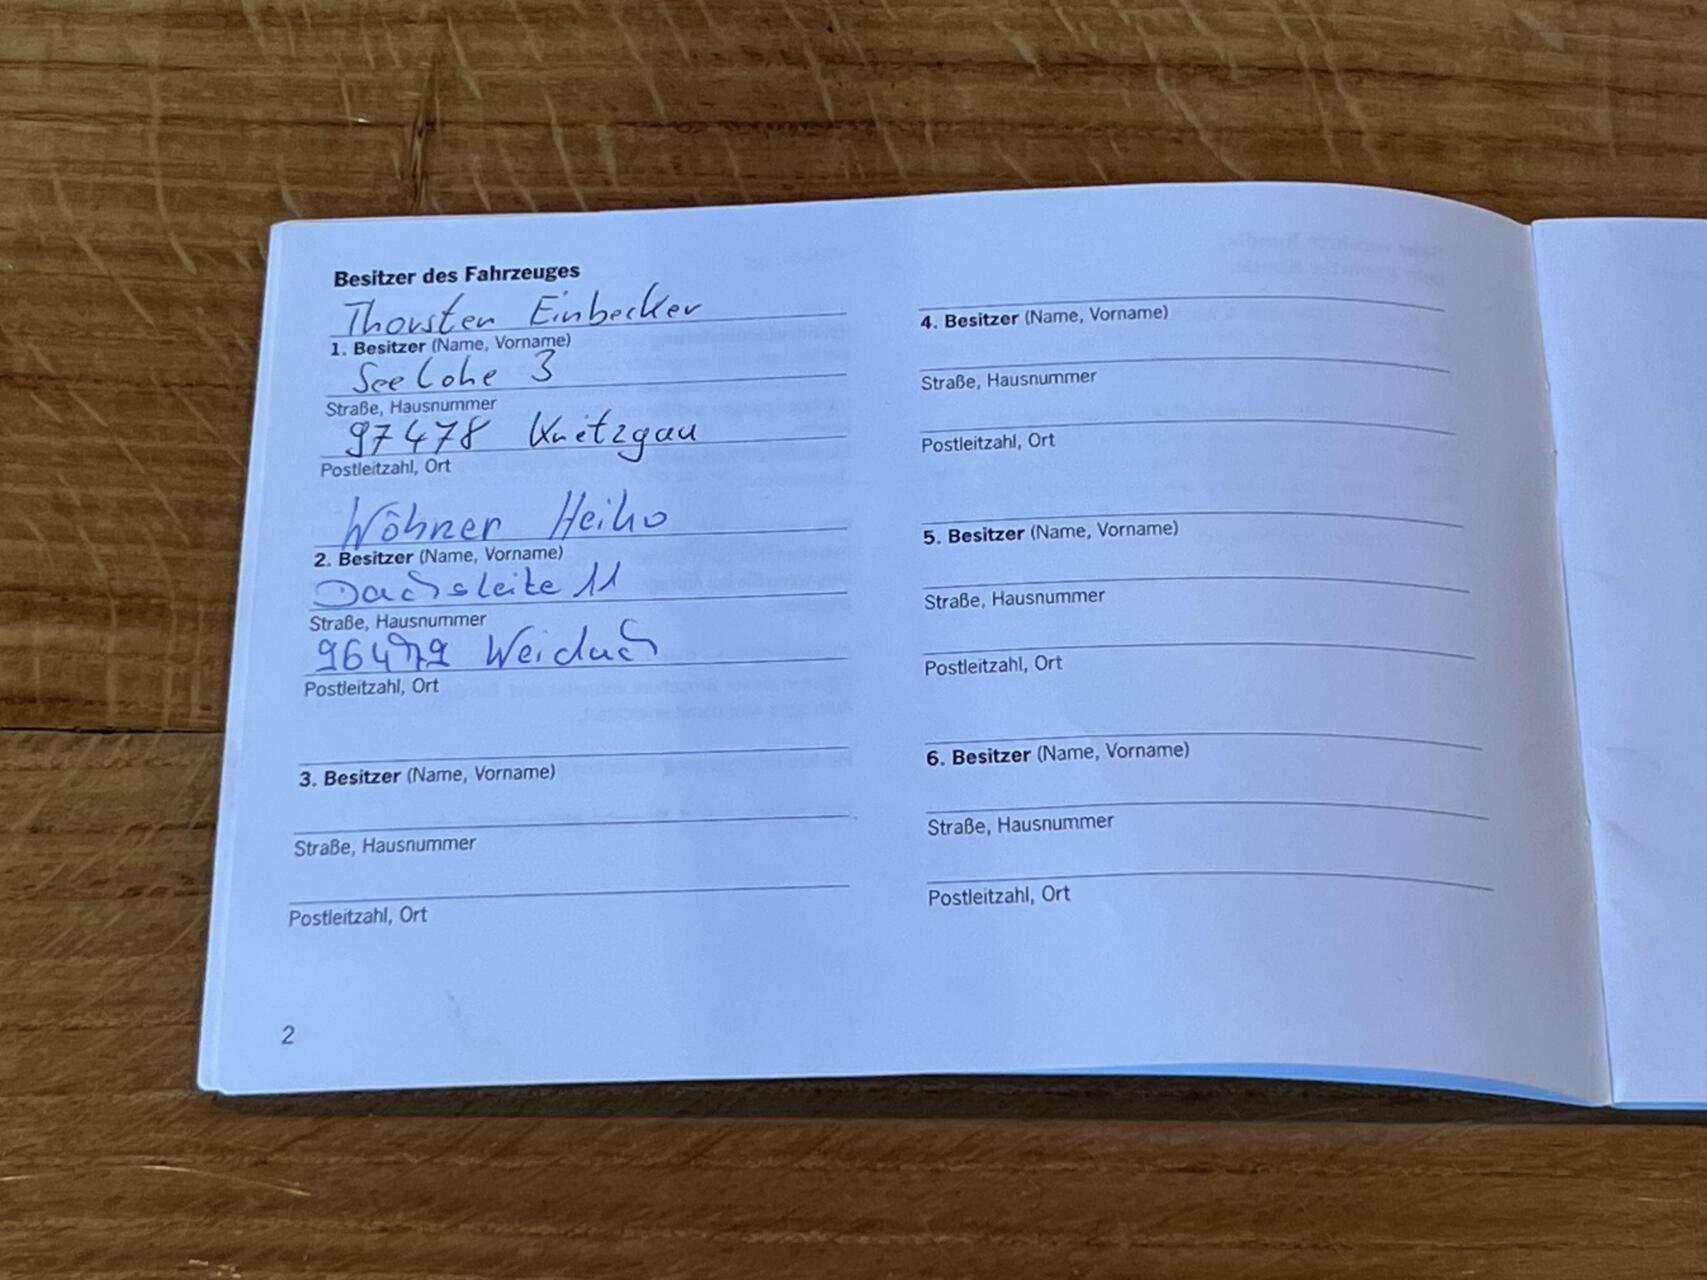 Besitzer des Fahrzeuges
Thorsten Einbecker
1. Besitzer (Name, Vorname)
Seelohe 3
Straße, Hausnummer
97478 Knetzgau
Postleitzahl, Ort
Wöhner Heiko
2. Besitzer (Name, Vorname)
Dachsleite 11
Straße, Hausnummer
96479 Weidach
Postleitzahl, Ort
3. Besitzer (Name, Vorname)
Straße, Hausnummer
Postleitzahl, Ort
4. Besitzer (Name, Vorname)
Straße, Hausnummer
Postleitzahl, Ort
5. Besitzer (Name, Vorname)
Straße, Hausnummer
Postleitzahl, Ort
6. Besitzer (Name, Vorname)
Straße, Hausnummer
Postleitzahl, Ort
2